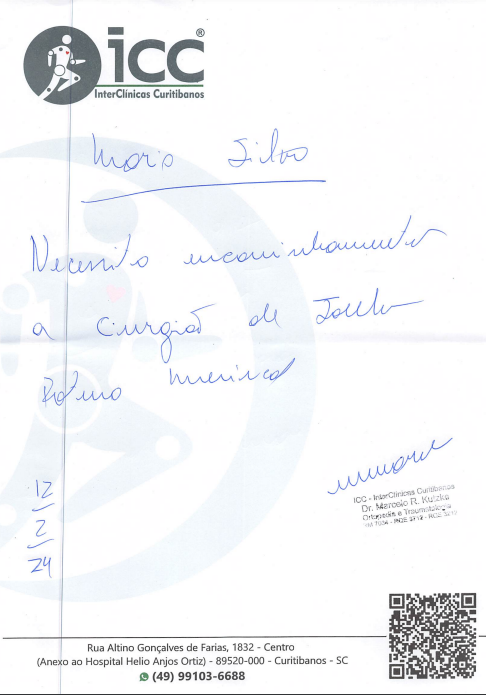 icc®
InterClínicas Curitibanos
Silva
Necessito encaminhamento
a cirurgião de Joelho
12
2
24
ICC - InterClínicas Curitibanos
Dr. Marcelo R. Kutzke
Ortopedia e Traumatologia
Rua Altino Gonçalves de Farias, 1832 - Centro
(Anexo ao Hospital Helio Anjos Ortiz) - 89520-000 - Curitibanos - SC
(49) 99103-6688